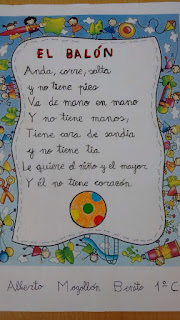 EL BALÓN
Anda, corre, salta
y no tiene pies
Va de mano en mano
Y no tiene manos,
Tiene cara de sandía
y no tiene tía
Le quiere el niño y el mayor
Y él no tiene corazón.
Alberto Mogollón Benito 1º C